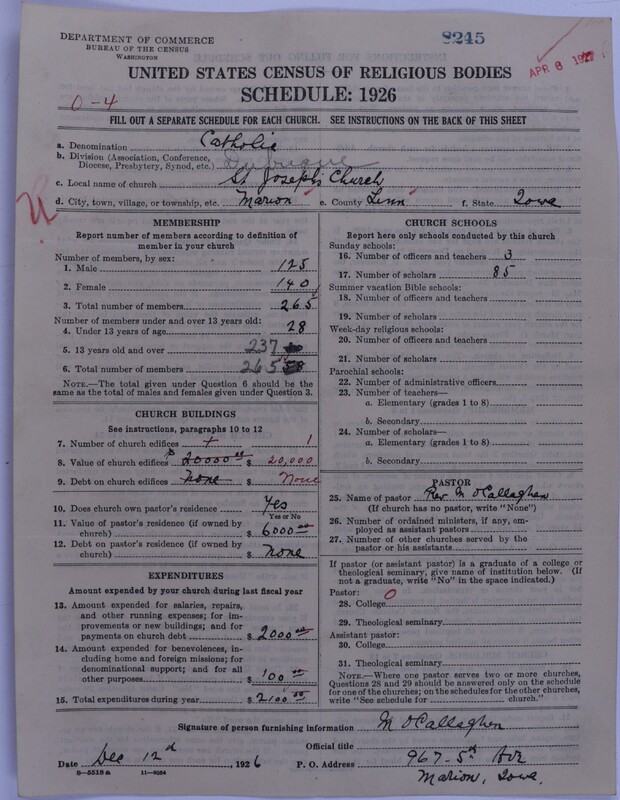 DEPARTMENT OF COMMERCE
BUREAU OF THE CENSUS
WASHINGTON
8245
APR 8 1927
UNITED STATES CENSUS OF RELIGIOUS BODIES
SCHEDULE: 1926
0-4
FILL OUT A SEPARATE SCHEDULE FOR EACH CHURCH. SEE INSTRUCTIONS ON THE BACK OF THIS SHEET
a. Denomination Catholic
b. Division (Association, Conference, Diocese, Presbytery, Synod, etc.) Dubuque
c. Local name of church St Joseph's Church
d. City, town, village, or township, etc. Marion e. County Linn f. State Iowa
MEMBERSHIP
Report number of members according to definition of
member in your church
Number of members, by sex:
1. Male 125
2. Female 140
3. Total number of members 265
Number of members under and over 13 years old:
4. Under 13 years of age 28
5. 13 years old and over 237
6. Total number of members 265
NOTE.—The total given under Question 6 should be
same as the total of males and females given under Question 3.
CHURCH BUILDINGS
See instructions, paragraphs 10 to 12
7. Number of church edifices 1 1
8. Value of church edifices $ 20000.00 $ 20,000
9. Debt on church edifices none $ None
10. Does church own pastor's residence Yes
Yes or No
11. Value of pastor's residence (if owned by
church) $ 6000.00
12. Debt on pastor's residence (if owned by
church) $ none
EXPENDITURES
Amount expended by your church during last fiscal year
13. Amount expended for salaries, repairs,
and other running expenses; for im-
provements or new buildings; and for
payments on church debt $ 2000.00
14. Amount expended for benevolences, in-
cluding home and foreign missions; for
denominational support; and for all
other purposes $ 100.00
15. Total expenditures during year $ 2100.00
CHURCH SCHOOLS
Report here only schools conducted by this church
Sunday schools:
16. Number of officers and teachers 3
17. Number of scholars 85
Summer vacation Bible schools:
18. Number of officers and teachers
19. Number of scholars
Week-day religious schools:
20. Number of officers and teachers
21. Number of scholars
Parochial schools:
22. Number of administrative officers
23. Number of teachers—
a. Elementary (grades 1 to 8)
b. Secondary
24. Number of scholars—
a. Elementary (grades 1 to 8)
b. Secondary
PASTOR
25. Name of pastor Rev. M O'Callaghan
(If church has no pastor, write "None")
26. Number of ordained ministers, if any, em-
ployed as assistant pastors
27. Number of other churches served by the
pastor or his assistants
If pastor (or assistant pastor) is a graduate of a college or
theological seminary, give name of institution below. (If
not a graduate, write "No" in the space indicated.)
Pastor: 0
28. College
29. Theological seminary
Assistant pastor:
30. College
31. Theological seminary
NOTE.—Where one pastor serves two or more churches,
Questions 28 and 29 should be answered only on the schedule
for one of the churches; on the schedules for the other churches,
write "See schedule for church."
Signature of person furnishing information M O'Callaghan
Official title
Date Dec 12th, 1926 P. O. Address 967-5th Ave
Marion, Iowa.
8-5518a 11-9054